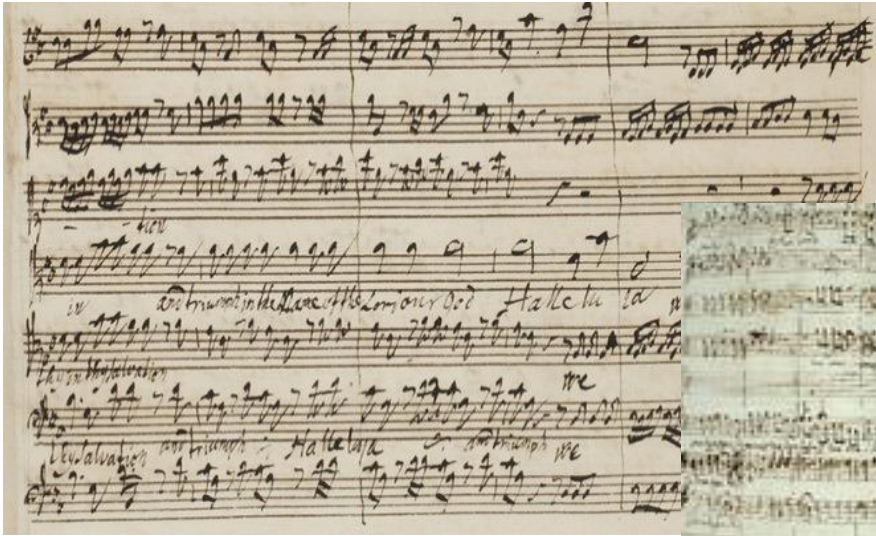 tion
in and triumph in the Name of the Lord our God Hallelu ia
thy in thy Salvation we
thy Salvation and triumph Halleluja and triumph we